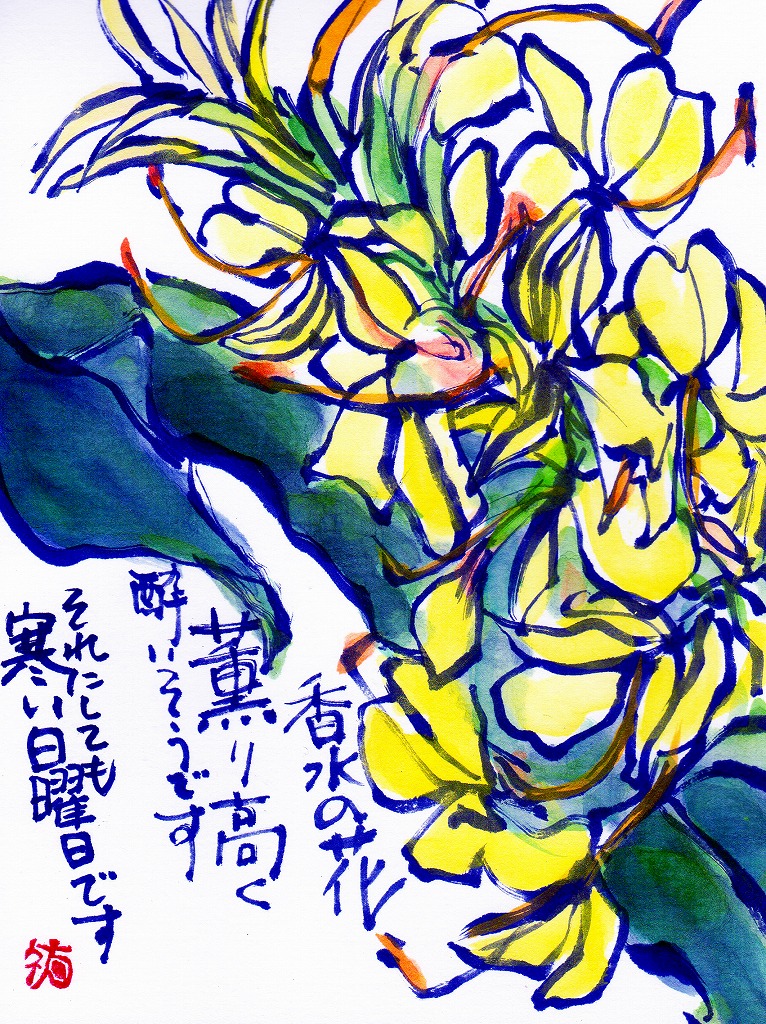 香水の花
薫り高く
酔いそうです
それにしても
寒い日曜日です